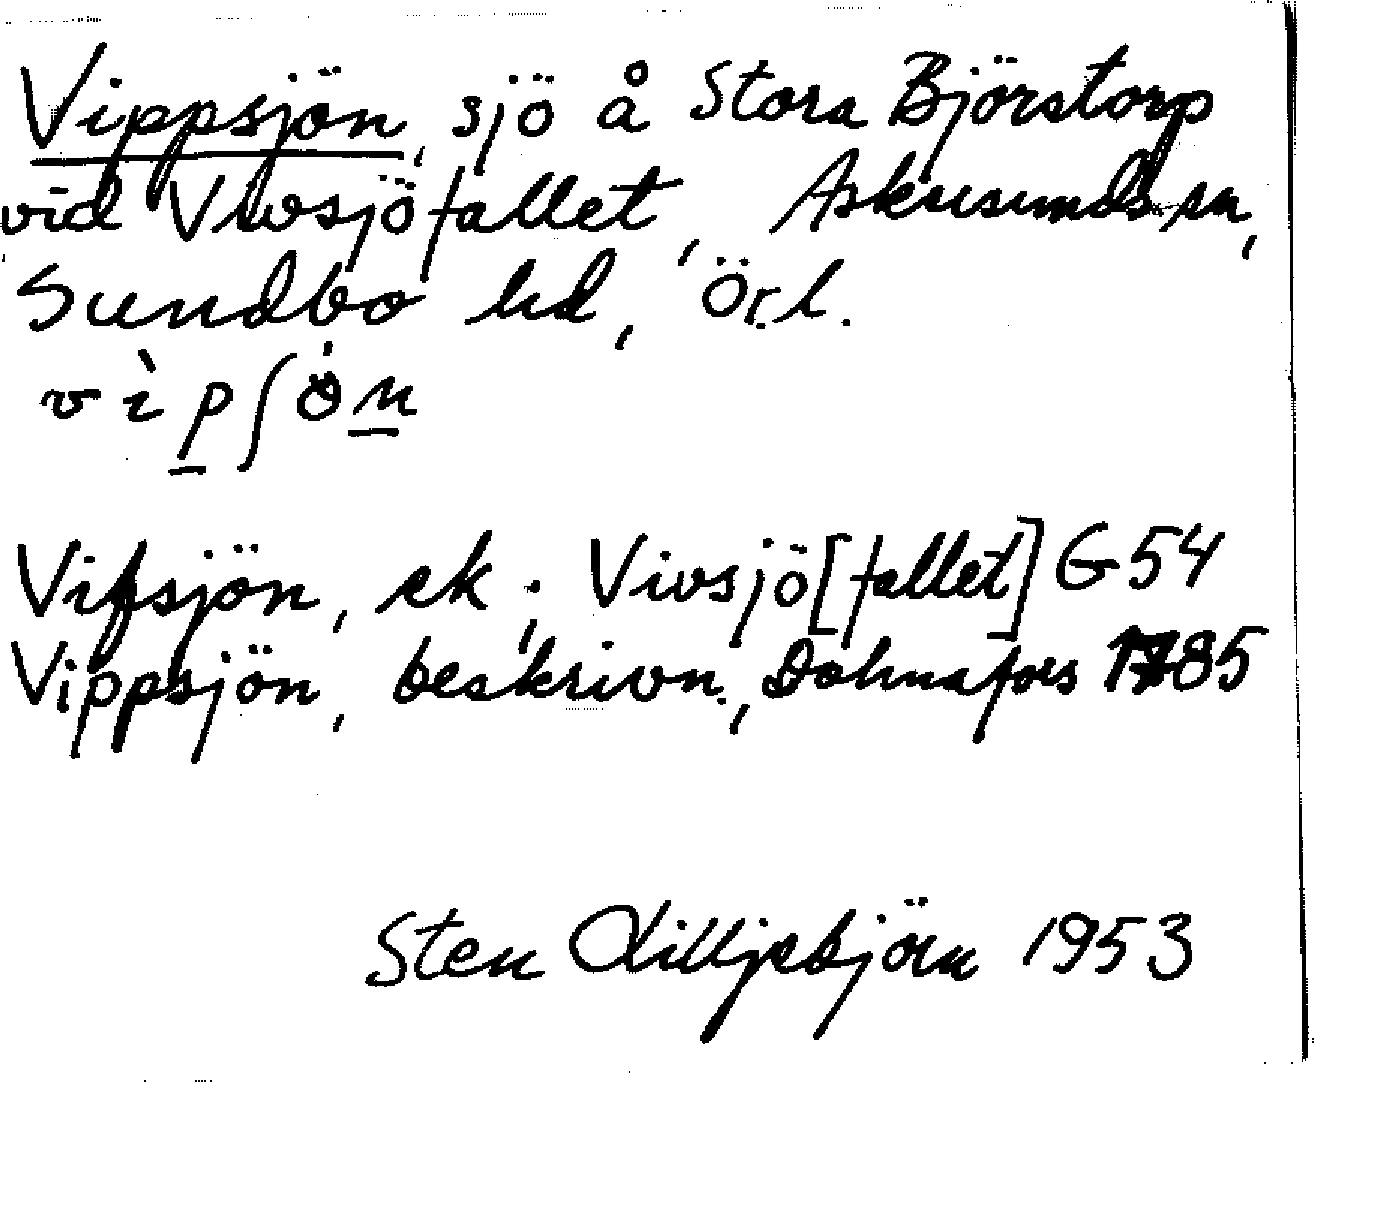 Vippsjön, sjö å Stora Björstorp
vid Vivsjöfallet, Askersunds sn,
Sundbo hd, Örl.
vìpʃön
Vifsjön, ek.; Vivsjö[fallet] G 54
Vippsjön, beskrivn., Dohnafors 1785
Sten Lilljebjörn 1953